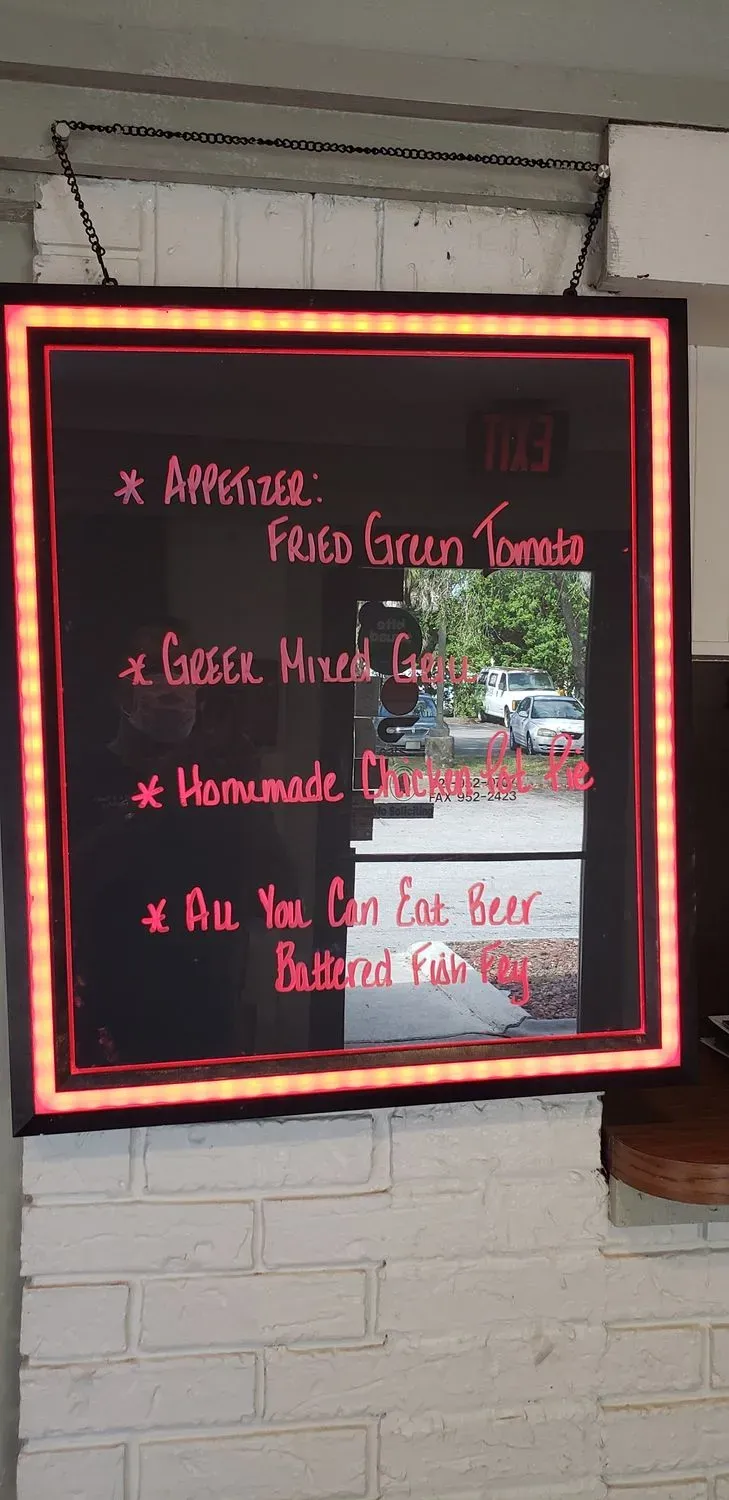 * APPETIZER:
FRIED Green Tomato
* GREEK Mixed GRILL
* Homemade Chicken Pot Pie
* All You Can Eat Beer
Battered Fish Fry
EXIT
FAX 952-2423
No Soliciting